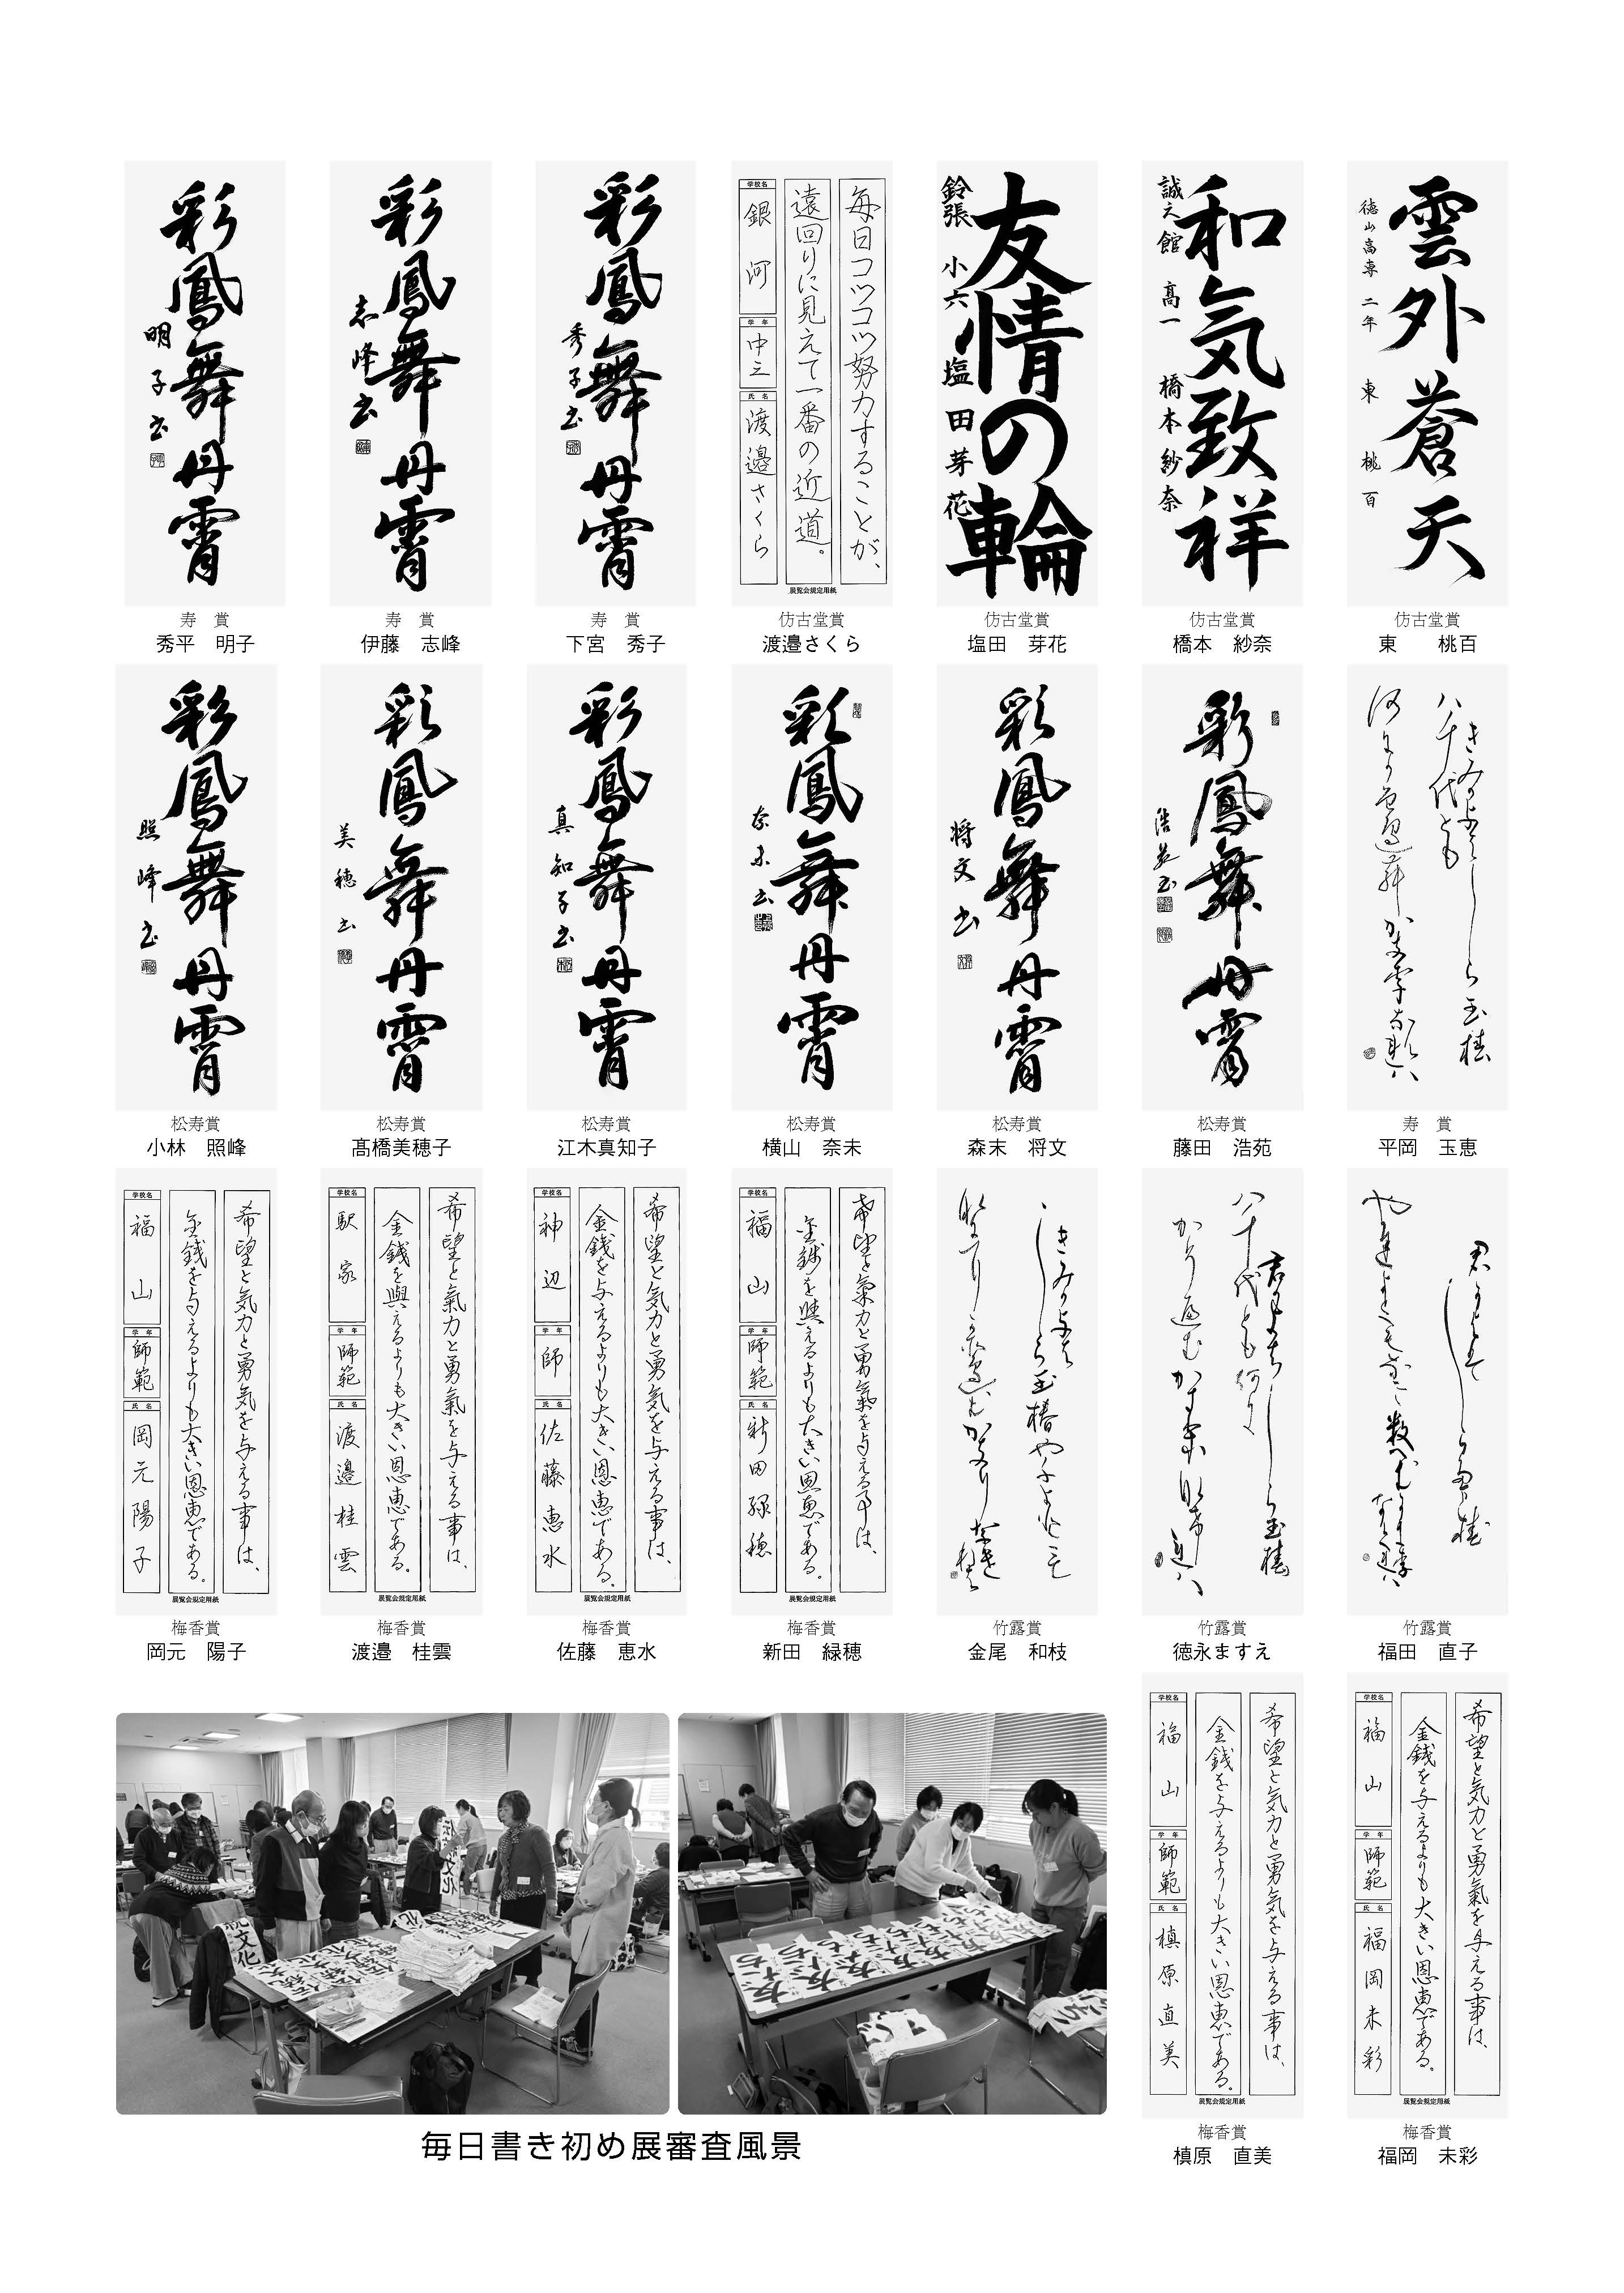 雲外蒼天
徳山高専 二年 東 桃百
仿古堂賞
東　桃百
和気致祥
誠之館 高一 橋本紗奈
仿古堂賞
橋本　紗奈
友情の輪
鈴張 小六 塩田芽花
仿古堂賞
塩田　芽花
毎日コツコツ努力することが、
遠回りに見えて一番の近道。
学校名
銀河
学年
中三
氏名
渡邉さくら
展覧会規定用紙
仿古堂賞
渡邉さくら
彩鳳舞丹霄
秀子書
寿　賞
下宮　秀子
彩鳳舞丹霄
志峰書
寿　賞
伊藤　志峰
彩鳳舞丹霄
明子書
寿　賞
秀平　明子
八千代とも
寿　賞
平岡　玉恵
彩鳳舞丹霄
浩苑書
松寿賞
藤田　浩苑
彩鳳舞丹霄
将文書
松寿賞
森末　将文
彩鳳舞丹霄
奈未書
松寿賞
横山　奈未
彩鳳舞丹霄
真知子書
松寿賞
江木真知子
彩鳳舞丹霄
美穂書
松寿賞
髙橋美穂子
彩鳳舞丹霄
照峰書
松寿賞
小林　照峰
竹露賞
福田　直子
八千代とも何に
竹露賞
徳永ますえ
竹露賞
金尾　和枝
希望と氣力と勇氣を与える事は、
金銭を與えるよりも大きい恩恵である。
学校名
福山
学年
師範
氏名
新田緑穂
展覧会規定用紙
梅香賞
新田　緑穂
希望と気力と勇気を与える事は、
金銭を与えるよりも大きい恩恵である。
学校名
神辺
学年
師
氏名
佐藤恵水
展覧会規定用紙
梅香賞
佐藤　恵水
希望と氣力と勇氣を与える事は、
金銭を與えるよりも大きい恩恵である。
学校名
駅家
学年
師範
氏名
渡邉桂雲
展覧会規定用紙
梅香賞
渡邉　桂雲
希望と気力と勇気を与える事は、
金銭を与えるよりも大きい恩恵である。
学校名
福山
学年
師範
氏名
岡元陽子
展覧会規定用紙
梅香賞
岡元　陽子
希望と気力と勇氣を与える事は、
金銭を与えるよりも大きい恩恵である。
学校名
福山
学年
師範
氏名
福岡未彩
展覧会規定用紙
梅香賞
福岡　未彩
希望と気力と勇気を与える事は、
金銭を与えるよりも大きい恩恵である。
学校名
福山
学年
師範
氏名
槙原直美
展覧会規定用紙
梅香賞
槙原　直美
毎日書き初め展審査風景